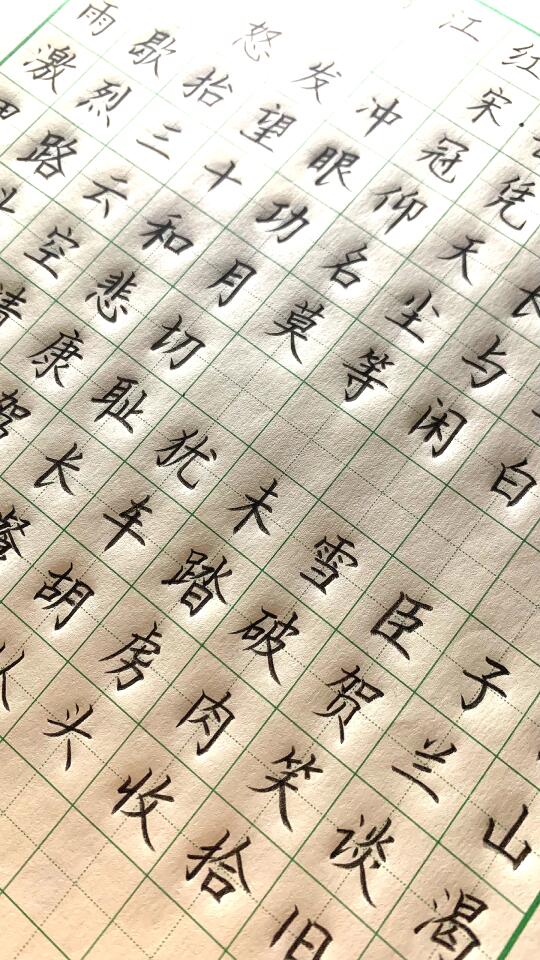 江红
宋·
怒发冲冠凭
雨歇抬望眼仰天长
激烈三十功名尘与
路云和月莫等闲白
空悲切
康耻犹未雪臣子
驾长车踏破贺兰山
餐胡虏肉笑谈渴
从头收拾旧